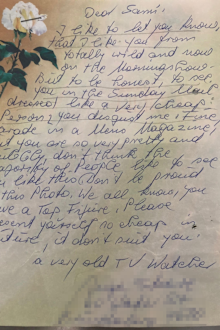 Dear Sam:
I like to let you know,
that I like you from
totally wild and now
on the Mornings Show
But to be honest, to see
you in the Sunday Mail
dressed like a very cheap
Person, you disgust me. Fine
in a Mens Magazine,
but you are so very pretty and
don't think the
of People like to see
you like this. Don't be proud
this Photo. We all know, you
have a Top Figure, Please
present yourself so cheap in
future, it don't suit you.
a very old TV Watcher